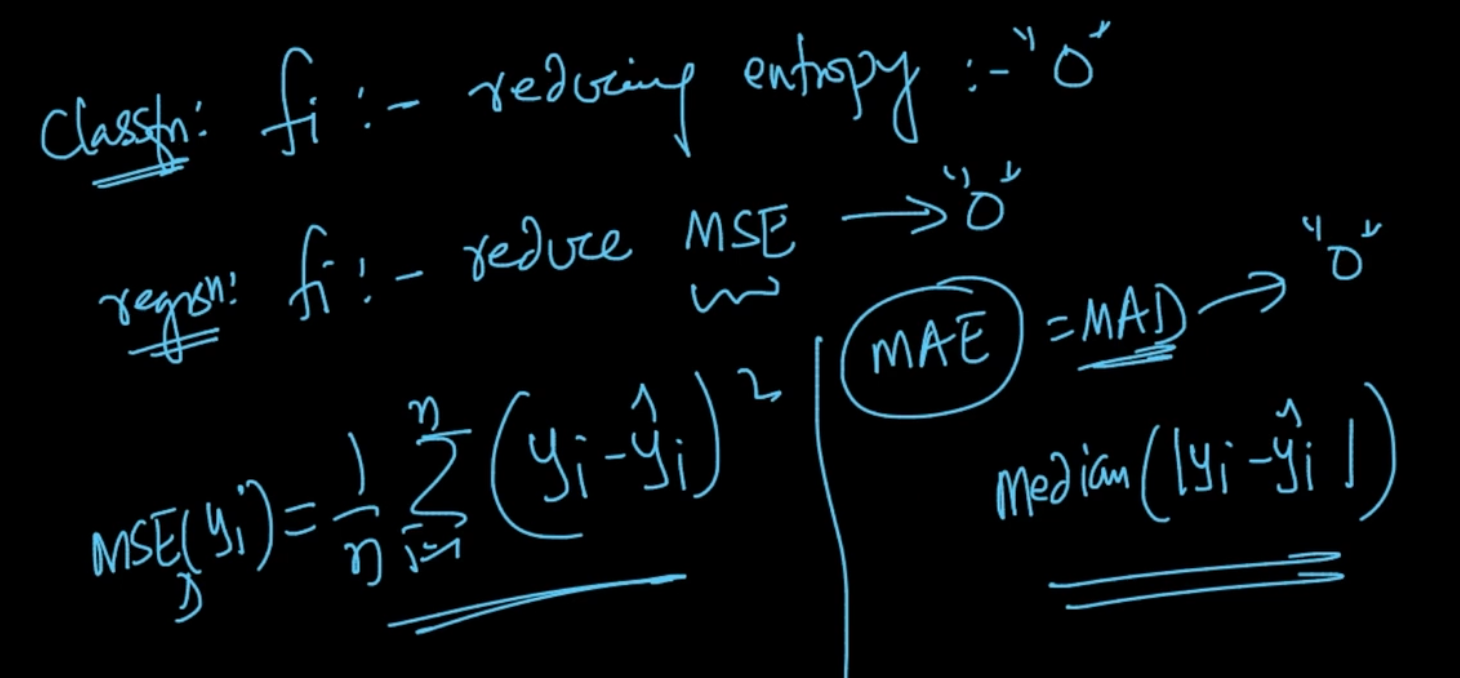 Classfn: fi :- reducing entropy :- "0"
regrsn: fi :- reduce MSE → "0"
MAE = MAD → "0"
MSE_D(yi) = 1/n Σ_{i=1}^{n} (yi - ŷi)²
Median(|yi - ŷi|)